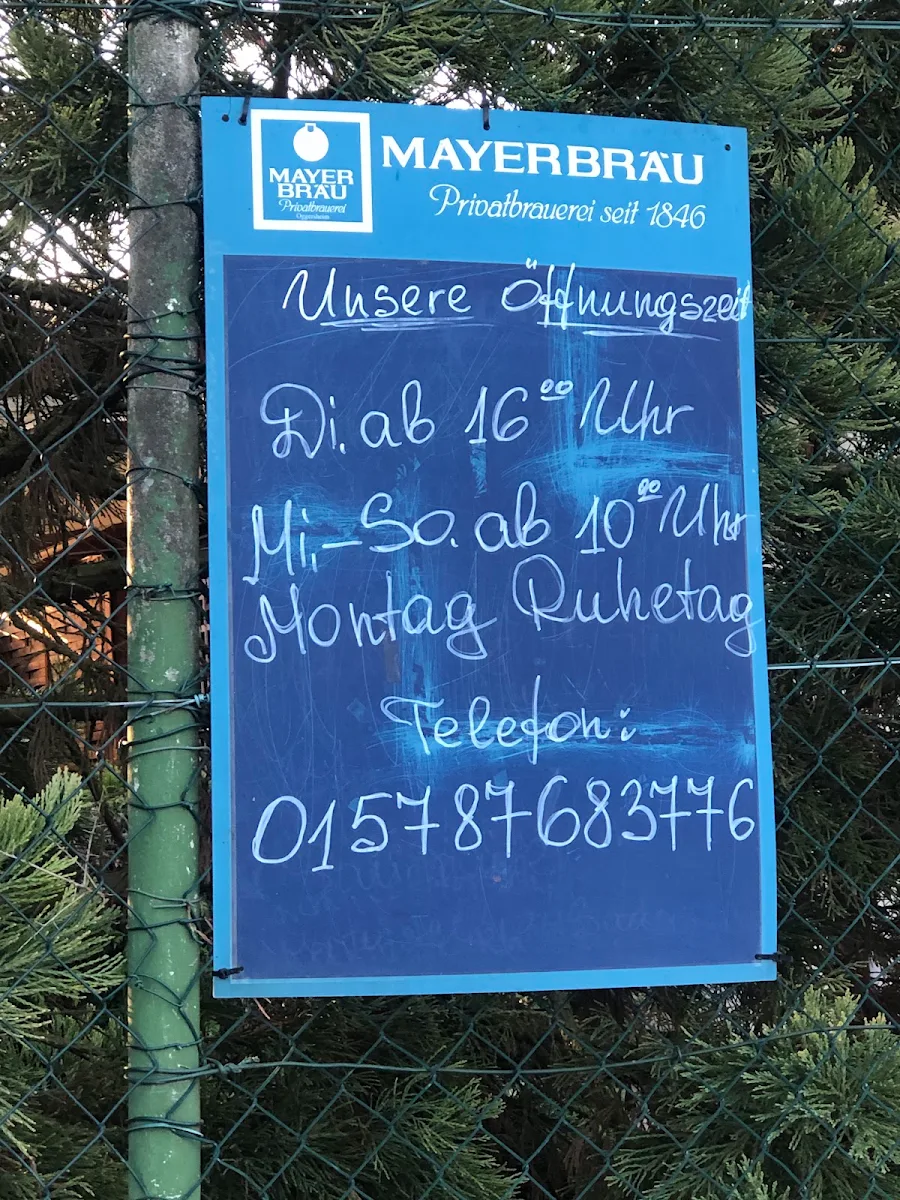 MAYER
BRÄU
Privatbrauerei
Oggersheim
MAYERBRÄU
Privatbrauerei seit 1846
Unsere Öffnungszeit
Di. ab 16⁰⁰ Uhr
Mi.-So. ab 10⁰⁰ Uhr
Montag Ruhetag
Telefon:
015787683776